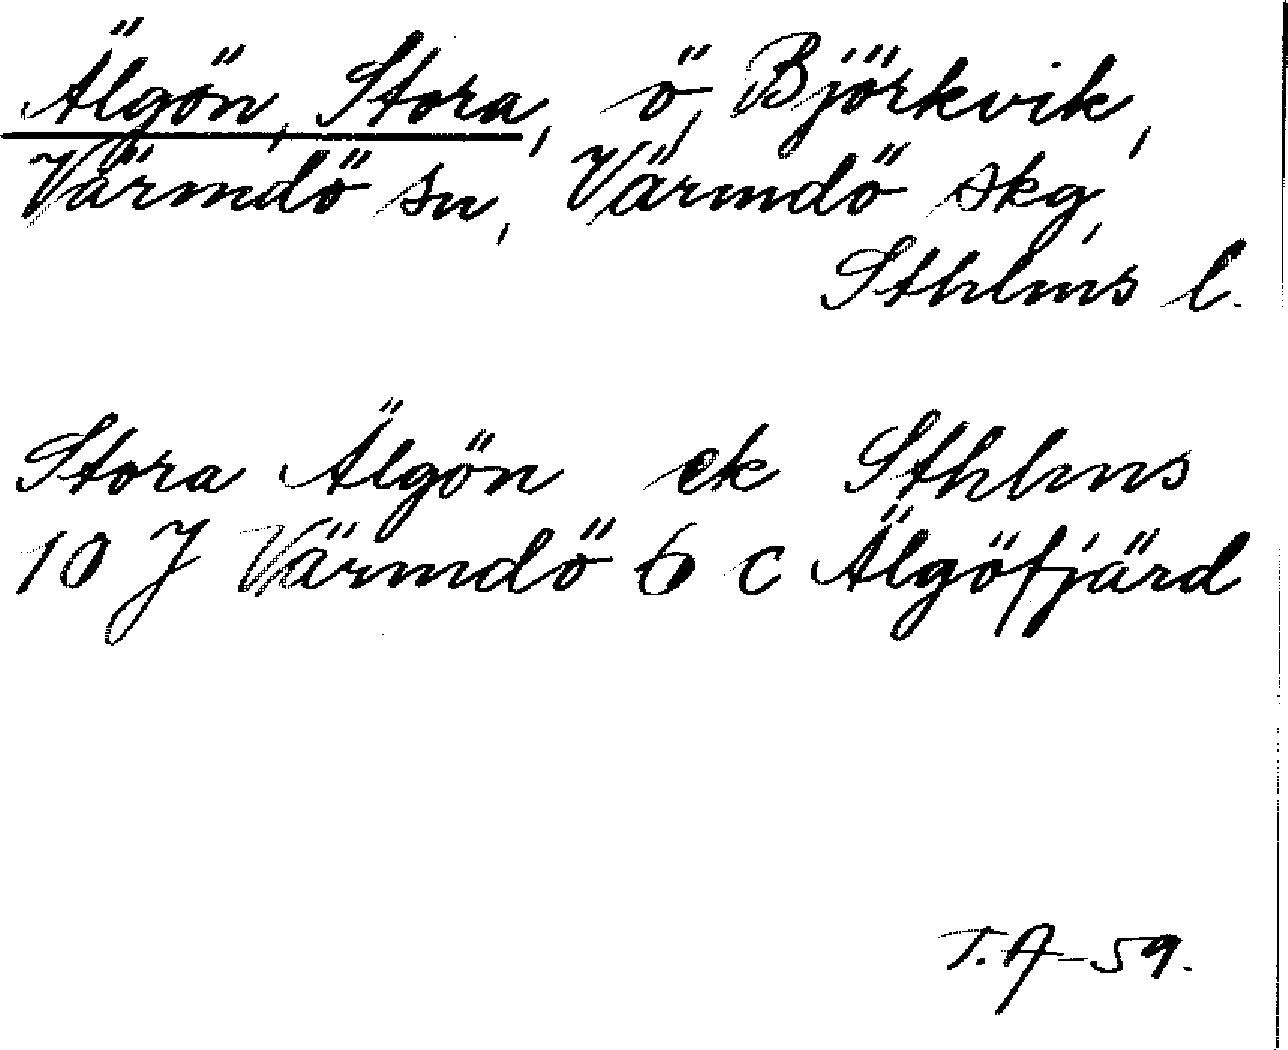 Älgön, Stora, ö, Björkvik,
Värmdö sn, Värmdö skg,
Sthlms l.
Stora Älgön ek Sthlms
10 J Värmdö 6 c Älgöfjärd
T.A-59.